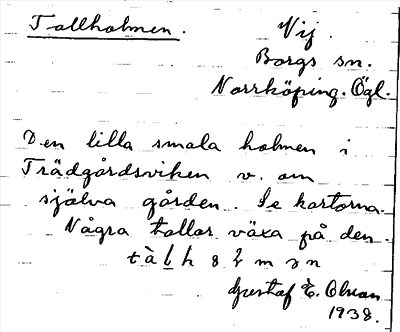 Tallholmen. Vij.
Borgs sn.
Norrköping. Ögl.
Den lilla smala holmen i
Trädgårdsviken v. om
själva gården. Se kartorna.
Några tallar växa på den.
Gustaf E. Olson
1938.